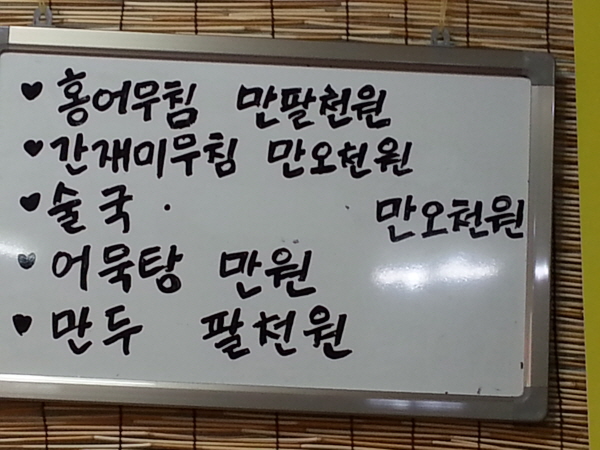 ♥ 홍어무침 만팔천원
♥ 간재미무침 만오천원
♥ 술국 · 만오천원
♥ 어묵탕 만원
♥ 만두 팔천원